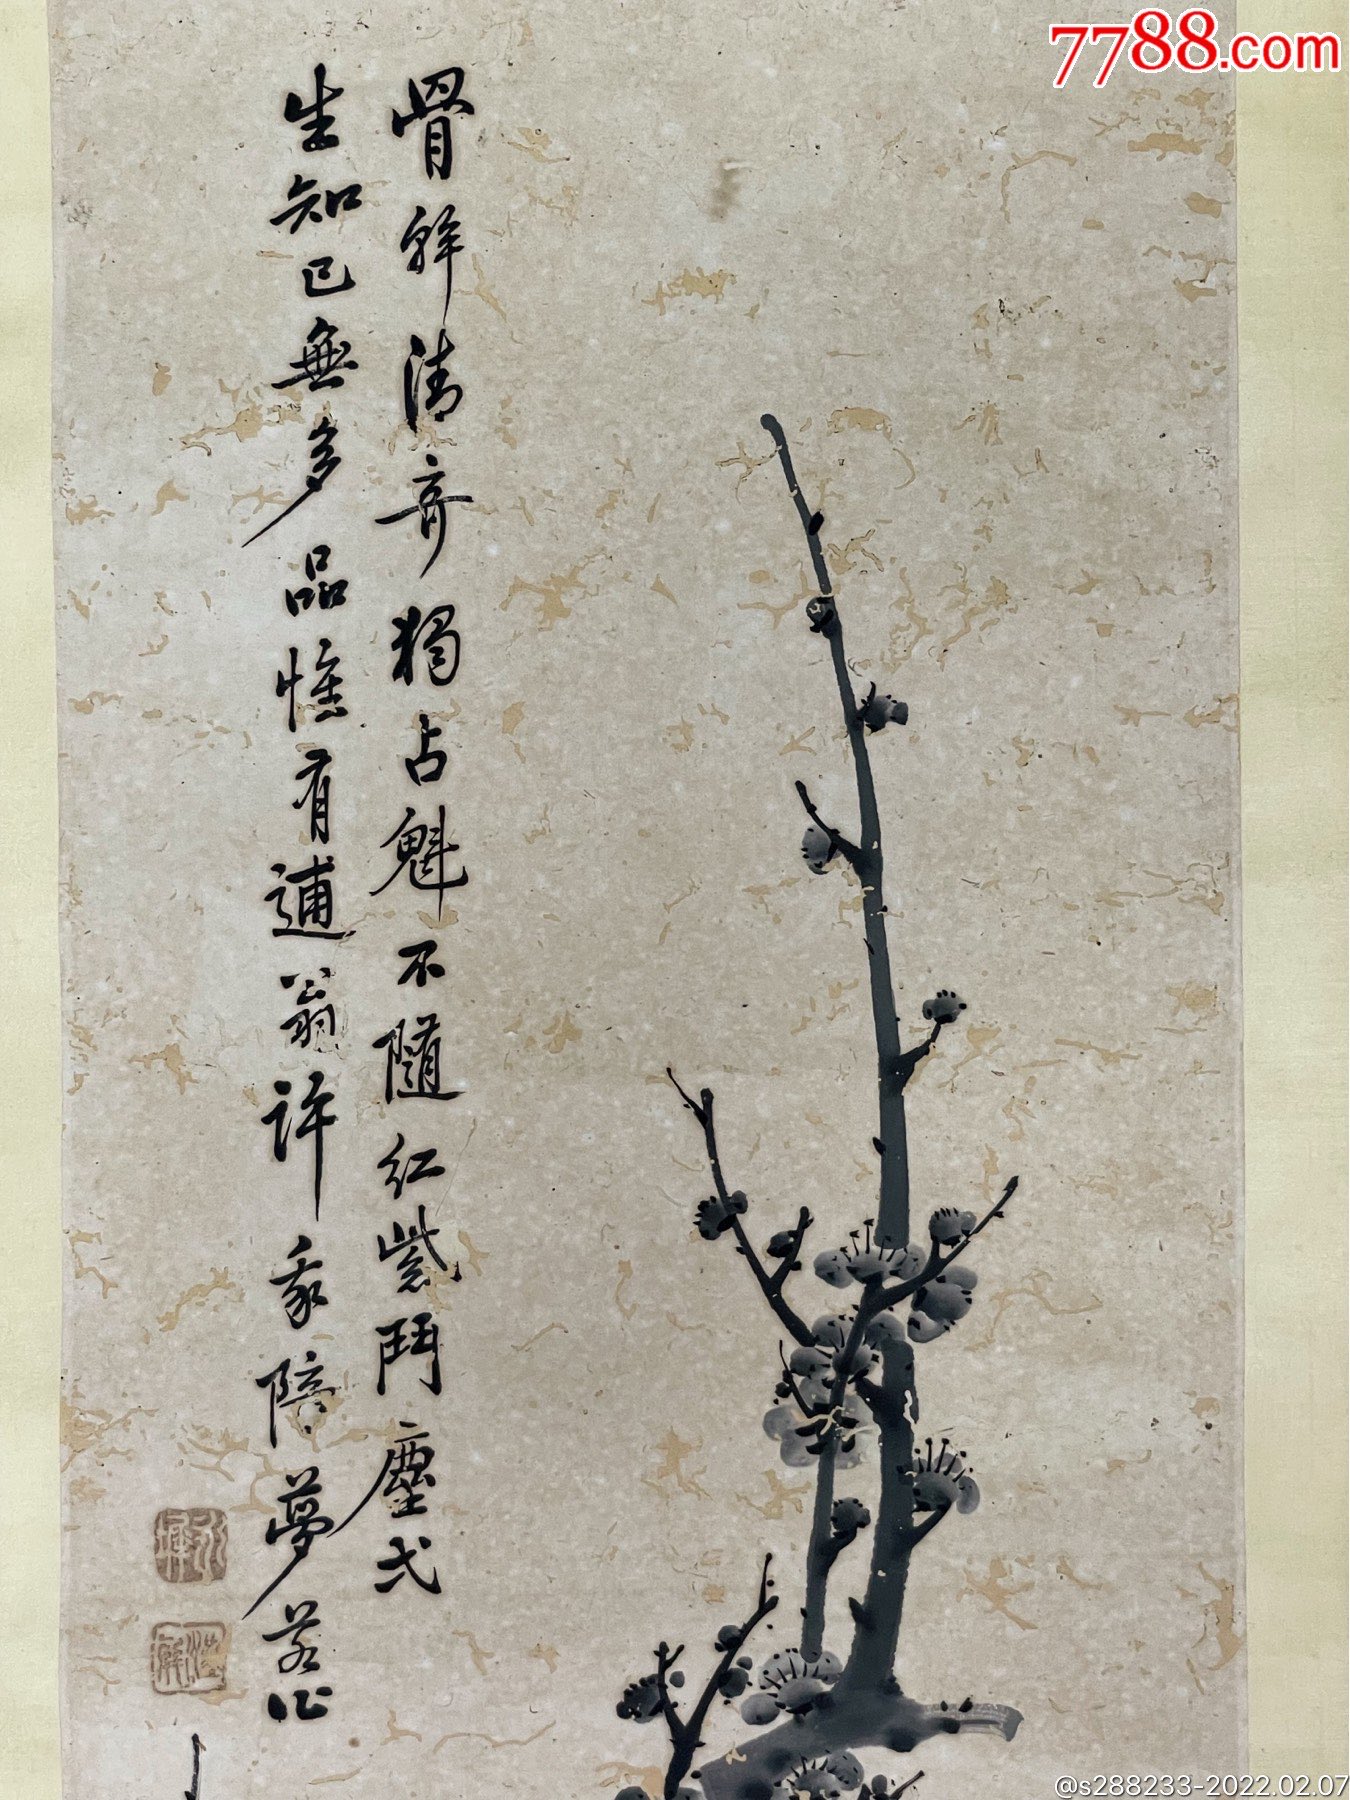 7788.com
骨幹清奇獨占魁不隨紅紫鬥塵弍
生知己無多品惟有逋翁許我陪夢若作
@s288233-2022.02.07